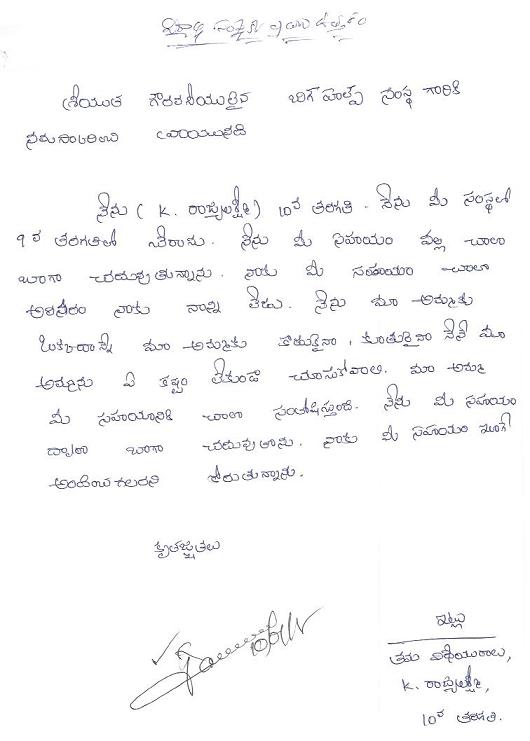 విద్యార్థి సంక్షేమ ప్రయోజనార్థం
శ్రీయుత గౌరవనీయులైన బిగ్ హెల్ప్ సంస్థ గారికి
నమస్కరించి వ్రాయునది
నేను ( K. రాజ్యలక్ష్మి) 10వ తరగతి. నేను మీ సంస్థలో
9 వ తరగతిలో చేరాను. నేను మీ సహాయం వల్ల చాలా
బాగా చదువుతున్నాను. నాకు మీ సహాయం చాలా
అవసరం నాకు నాన్న లేడు. నేను మా అమ్మకు
ఒక్కదాన్నే మా అమ్మకు కొడుకైనా, కూతురైనా నేనే మా
అమ్మను ఏ కష్టం లేకుండా చూసుకోవాలి. మా అమ్మ
మీ సహాయానికి చాలా సంతోషిస్తుంది. నేను మీ సహాయం
ద్వారా బాగా చదువుతాను. నాకు మీ సహాయం ఇలాగే
అందించగలరని కోరుతున్నాను.
కృతజ్ఞతలు
ఇట్లు
తమ విధేయురాలు,
K. రాజ్యలక్ష్మి,
10వ తరగతి.